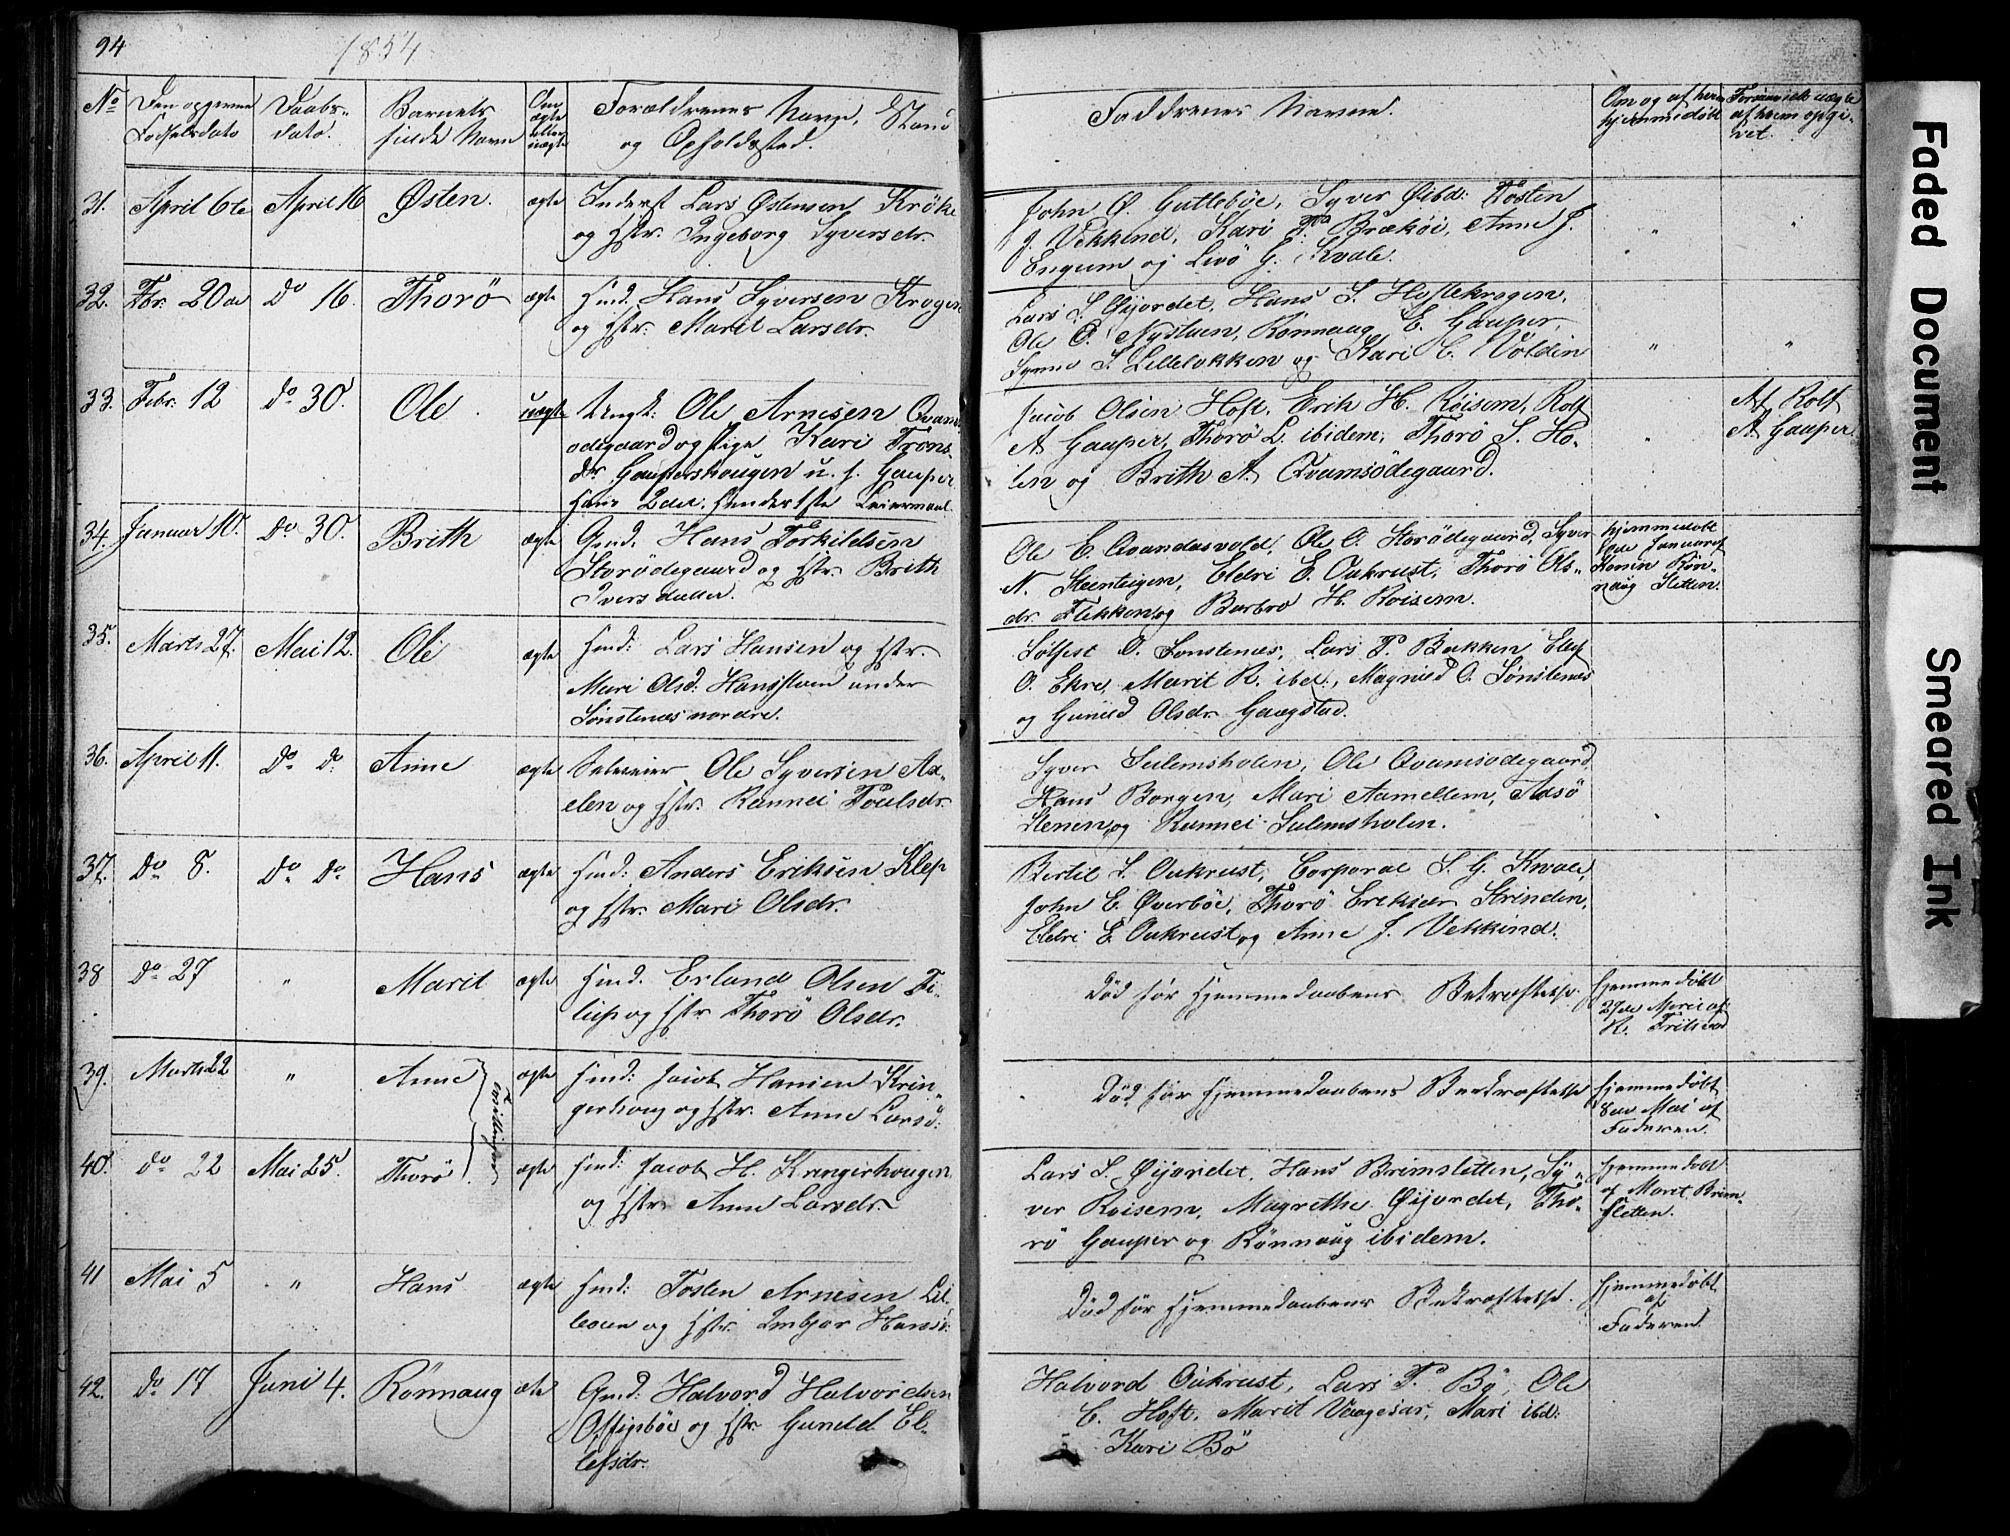 94
1854
No
Den opgivne
Fødselsdato
Daabs-
dato.
Barnets
fulde Navn
Om
ægte
eller
uægte
Forældrenes Navn, Stand
og Opholdssted.
Faddrenes Navne.
Om og af hvem
hjemmedøbt
Forsaavidt uægte
af hvem opgi-
vet.
31.
April 6te
April 16
Østen.
ægte
Inderst Lars Østensen Kröke
og Hstr. Ingeborg Syversdr.
John O. Guttebøe, Syver Ø ibd: Tösten
J. Vekkind, Kari Bræköi, Anne J.
Engum og Livö G. Kvale.
32.
Fbr. 20de
Do 16.
Thorö
ægte
Hmd. Hans Syversen Krogen
og Hstr: Marit Larsdr.
Lars S. Øijordet, Hans S. Hoftekrogen,
Ole O. Nystuen, Rönnaug E. Gauper,
Synne S. Lillelökken og Kari C. Voldin
33.
Febr: 12
Do 30.
Ole
uægte
Ungk: Ole Arnesen Qvams-
ödegaard og Pige Kari Trons-
dr. Gaupershougen u. f. Gauper
Hans 2det, Hendes 1ste Leiermaal.
Jacob Olsen Hoft, Erik H. Röisem, Rolf
A. Gauper, Thorö L. ibidem, Thorö S. Ho-
len og Brith A. Qvamsödegaard.
Af Rolf
A. Gauper
34.
Januar 10.
Do 30.
Brith
ægte
Gmd. Hans Torkildsen
Storödegaard og Hstr. Brith
Iversdatter.
Ole E. Qvandasvold, Ole O. Storödegaard, Syver
N. Steenteigen, Eldri E. Oukrust, Thorö Ols-
dr. Flekken og Barbro H. Roisem.
hjemmedøbt
Januar af
Konen Rön-
naug Sletten.
35.
Marts 27.
Mai 12.
Ole
ægte
Hmd: Lars Hansen og Hstr.
Mari Olsd: Hansstuen under
Sönstenæs nordre.
Sölfest O. Sonstenæs, Lars P. Bakken Elef
O. Ekre, Marit R. ibd:, Magnild O. Sönstenæs
og Gunild Olsdr. Gaugstad.
36.
April 11.
Do Do
Anne
ægte
Selveier Ole Syversen Aa-
elen og Hstr. Rannei Poulsdr.
Syver Sulemsholen, Ole Qvamsödegaard,
Hans Borgen, Mari Aamellem, Aasö
Stenen og Rannei Sulemsholen.
37.
Do 8.
Do Do
Hans
ægte
Hmd: Anders Eriksen Klep
og Hstr. Mari Olsdr.
Bertil S. Oukrust, Corporal S. G. Kvale,
John E. Øverböe, Thorö Eriksdr Strinden,
Eldri E. Oukrust og Anne J. Vekkind.
38
Do 27
"
Marit
ægte
Hmd. Erland Olsen Fi-
liip og Hstr Thorö Olsdr.
Död för Hjemmedaabens Bekræftelse.
hjemmedöbt
27de April af
R.
39.
Marts 22
"
Anne
Tvillinger
ægte
Hmd: Jacob Hansen Krin-
gerhoug og Hstr. Anne Larsd:
Död för Hjemmedaabens Bekræftelse
hjemmedöbt
8de Mai af
Faderen.
40.
do 22
Mai 25.
Thorö
ægte
Hmd: Jacob H. Krengerhougen
og Hstr. Anne Larsdr.
Lars S. Øijordet, Hans Brimsletten, Sy-
ver Roisem, Magrethe Øijordet, Tho-
rö Gauper og Rönnaug ibidem.
hjemmedöbt
af Maret Brim-
sletten.
41
Mai 5
"
Hans
ægte
Hmd: Tosten Arnesen Lil-
leoien og Hstr. Imbjør Hansd:
Död för Hjemmedaabens Bekræftelse.
Hjemmedöbt
af
Faderen.
42.
do 17
Juni 4.
Rönnaug
Gmd: Halvord Halvordsen
Offigsböe og Hstr. Gunild El-
lefsdr.
Halvord Oukrust, Lars P. Bö, Ole
C. Hoft, Marit Vaagesar, Mari ibd:
Kari Bö
Faded Document
Smeared Ink